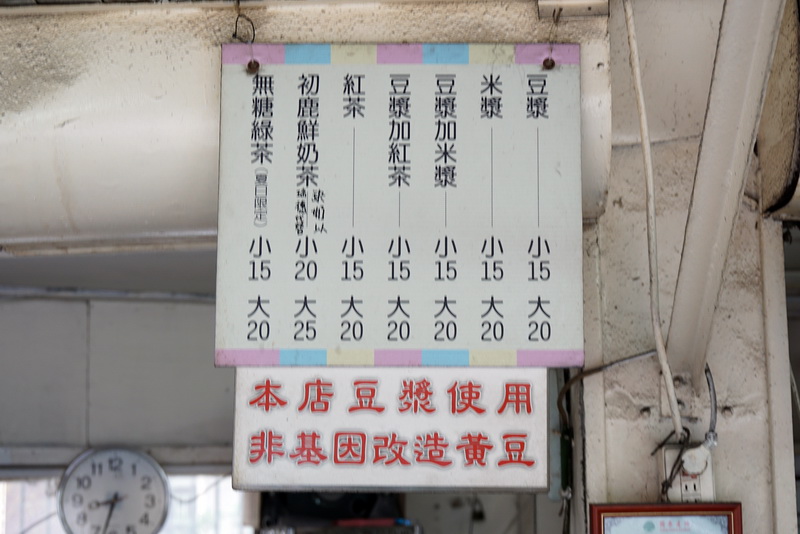 豆漿 小15 大20
米漿 小15 大20
豆漿加米漿 小15 大20
豆漿加紅茶 小15 大20
紅茶 小15 大20
初鹿鮮奶茶 小20 大25
無糖綠茶(夏日限定) 小15 大20
本店豆漿使用
非基因改造黃豆